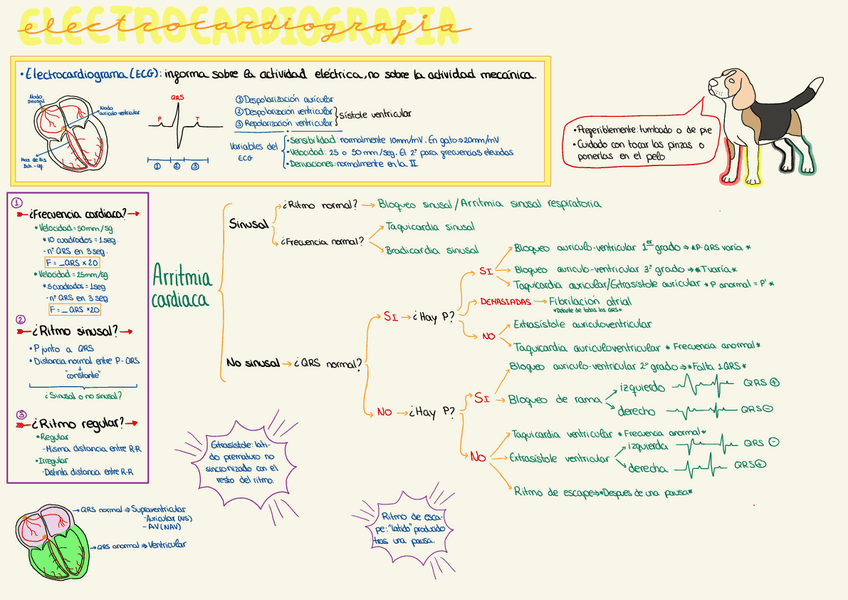 ELECTROCARDIOGRAFIA
electrocardiografia
• Electrocardiograma (ECG): informa sobre la actividad eléctrica, no sobre la actividad mecánica.
Nodo
Nodo
aurículo-ventricular
QRS
P
T
① ② ③
① Despolarización auricular
② Despolarización ventricular
③ Repolarización ventricular
sístole ventricular
Variables del
ECG
• Sensibilidad: normalmente 10mm/mV. En gato → 20mm/mV
• Velocidad: 25 o 50 mm/seg. El 2º para frecuencias elevadas
• Derivaciones: normalmente en la II.
• Preferiblemente tumbado o de pie
• Cuidado con tocar las pinzas o
ponerlas en el pelo
①
¿Frecuencia cardiaca?
• Velocidad = 50mm/sg
* 10 cuadrados = 1seg
- nº QRS en 3 seg.
F = _ QRS × 20
• Velocidad = 25mm/sg
* 5 cuadrados = 1seg
- nº QRS en 3 seg
F = _ QRS × 20
②
¿Ritmo sinusal?
• P junto a QRS
• Distancia normal entre P-QRS
"constante"
¿Sinusal o no sinusal?
③
¿Ritmo regular?
• Regular
- Misma distancia entre R-R
• Irregular
- Distinta distancia entre R-R
Arritmia
cardiaca
Sinusal
¿Ritmo normal? → Bloqueo sinusal/Arritmia sinusal respiratoria
¿Frecuencia normal?
Taquicardia sinusal
Bradicardia sinusal
No sinusal → ¿QRS normal?
SI → ¿Hay P?
SI
Bloqueo auriculo-ventricular 1er grado → *P-QRS varía*
Bloqueo auriculo-ventricular 3º grado → *T varía*
Taquicardia auricular/Extrasístole auricular *P anormal = P'*
DEMASIADAS → Fibrilación atrial
NO
Extrasístole auriculoventricular
Taquicardia auriculoventricular * Frecuencia anormal*
NO → ¿Hay P?
SI
Bloqueo auriculo-ventricular 2º grado → *Falta 1 QRS*
Bloqueo de rama
izquierdo QRS ⊕
derecho QRS ⊖
NO
Taquicardia ventricular *Frecuencia anormal*
Extrasístole ventricular
izquierda QRS ⊖
derecha QRS ⊕
Ritmo de escape → *Después de una pausa*
Extrasístole: lati-
do prematuro no
sincronizado con el
resto del ritmo.
Ritmo de esca-
pe: "latido" producido
tras una pausa.
QRS normal → Supraventricular
- Auricular (NS)
- AV (NAV)
QRS anormal → Ventricular